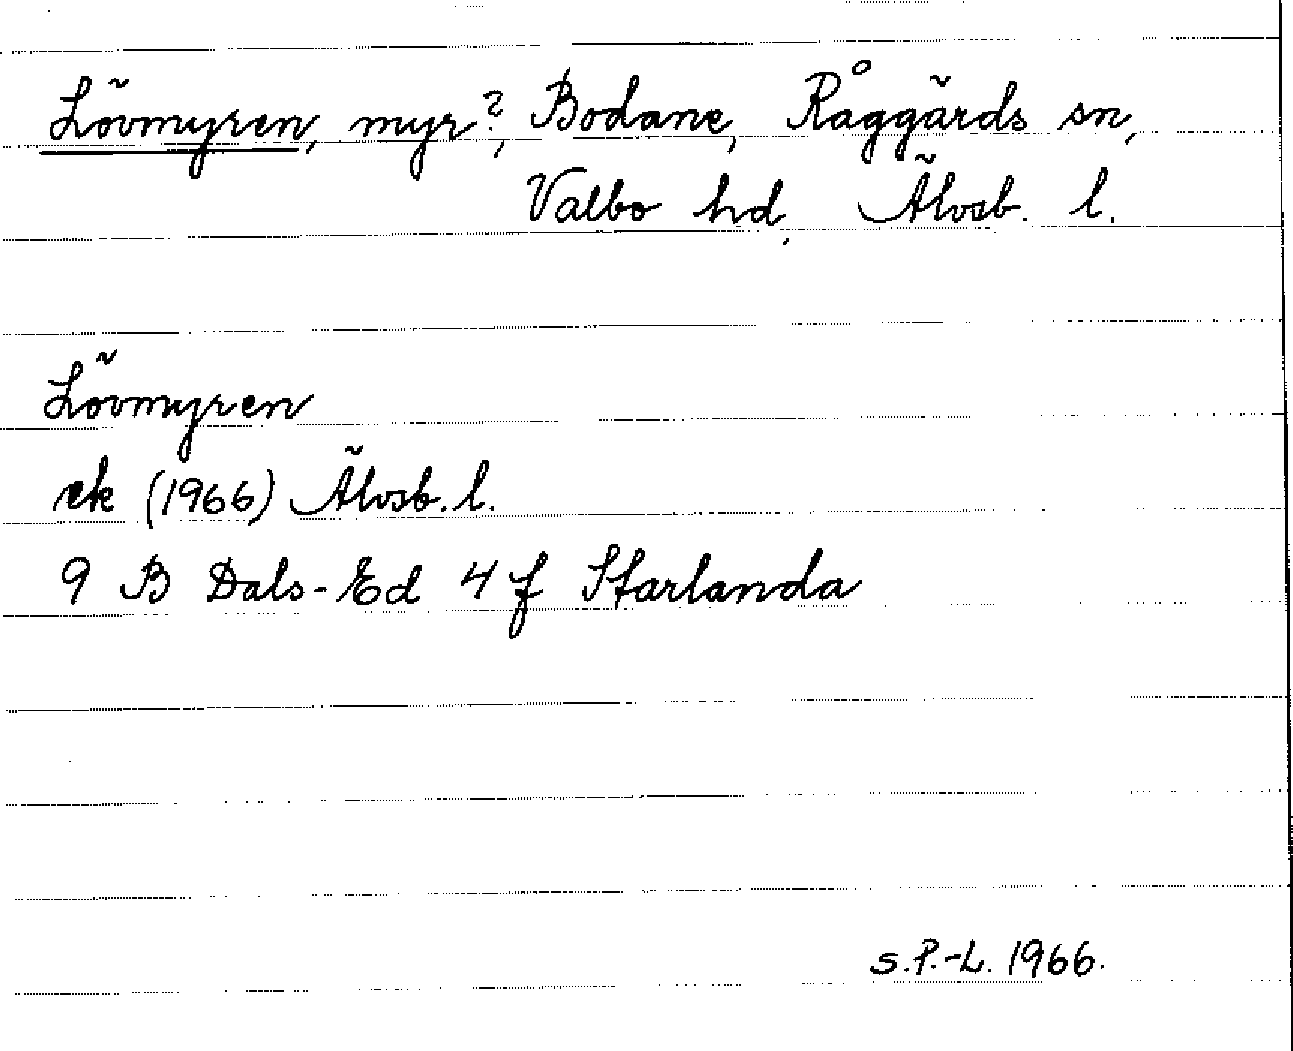 Lövmyren, myr?, Bodane, Råggärds sn,
Valbo hd, Älvsb. l.
Lövmyren
ek (1966) Älvsb. l.
9 B Dals-Ed 4 f Starlanda
S.P.-L. 1966.